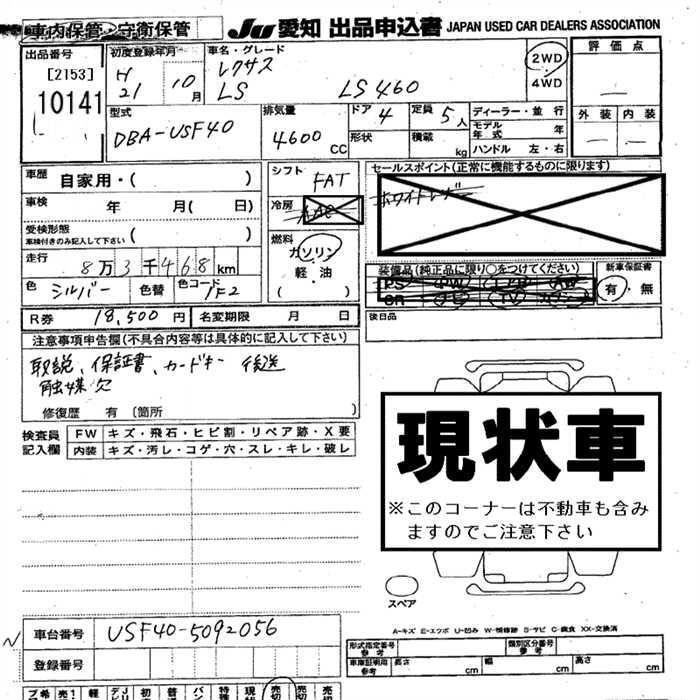 車内保管・守衛保管
JU 愛知 出品申込書 JAPAN USED CAR DEALERS ASSOCIATION
出品番号
[2153]
10141
初度登録年月
H21 10月
車名・グレード
レクサス
LS LS460
2WD
4WD
評価点
外装 内装
型式
DBA-USF40
排気量
4600 CC
ドア 4
形状
定員 5人
積載 kg
ディーラー・並行
モデル年式 年
ハンドル 左・右
車歴 自家用・( )
車検 年 月( 日)
受検形態
車検付きのみ記入して下さい ( )
走行 8万3千468km
色 シルバー 色替 色コード 1F2
シフト FAT
冷房 AAC
燃料
ガソリン
軽・油
( )
セールスポイント(正常に機能するものに限ります)
ホワイトレザー
装備品(純正品に限り○をつけてください)
PS PW
SR ナビ TV
新車保証書
有・無
後日品
R券 18,500円 名変期限 月 日
注意事項申告欄(不具合内容等は具体的に記入して下さい)
取説、保証書、カードキー 後送
触媒欠
修復歴 有 (箇所 )
検査員記入欄
FW キズ・飛石・ヒビ割・リペア跡・X要
内装 キズ・汚レ・コゲ・穴・スレ・キレ・破レ
現状車
※このコーナーは不動車も含み
ますのでご注意下さい
スペア
A-キズ E-エクボ U-凹み W-補修跡 S-サビ C-腐食 XX-交換済
車台番号 USF40-5092056
登録番号
形式指定番号 参考
類別区分番号 参考
車庫証明用 参考 長さ cm 幅 cm 高さ cm